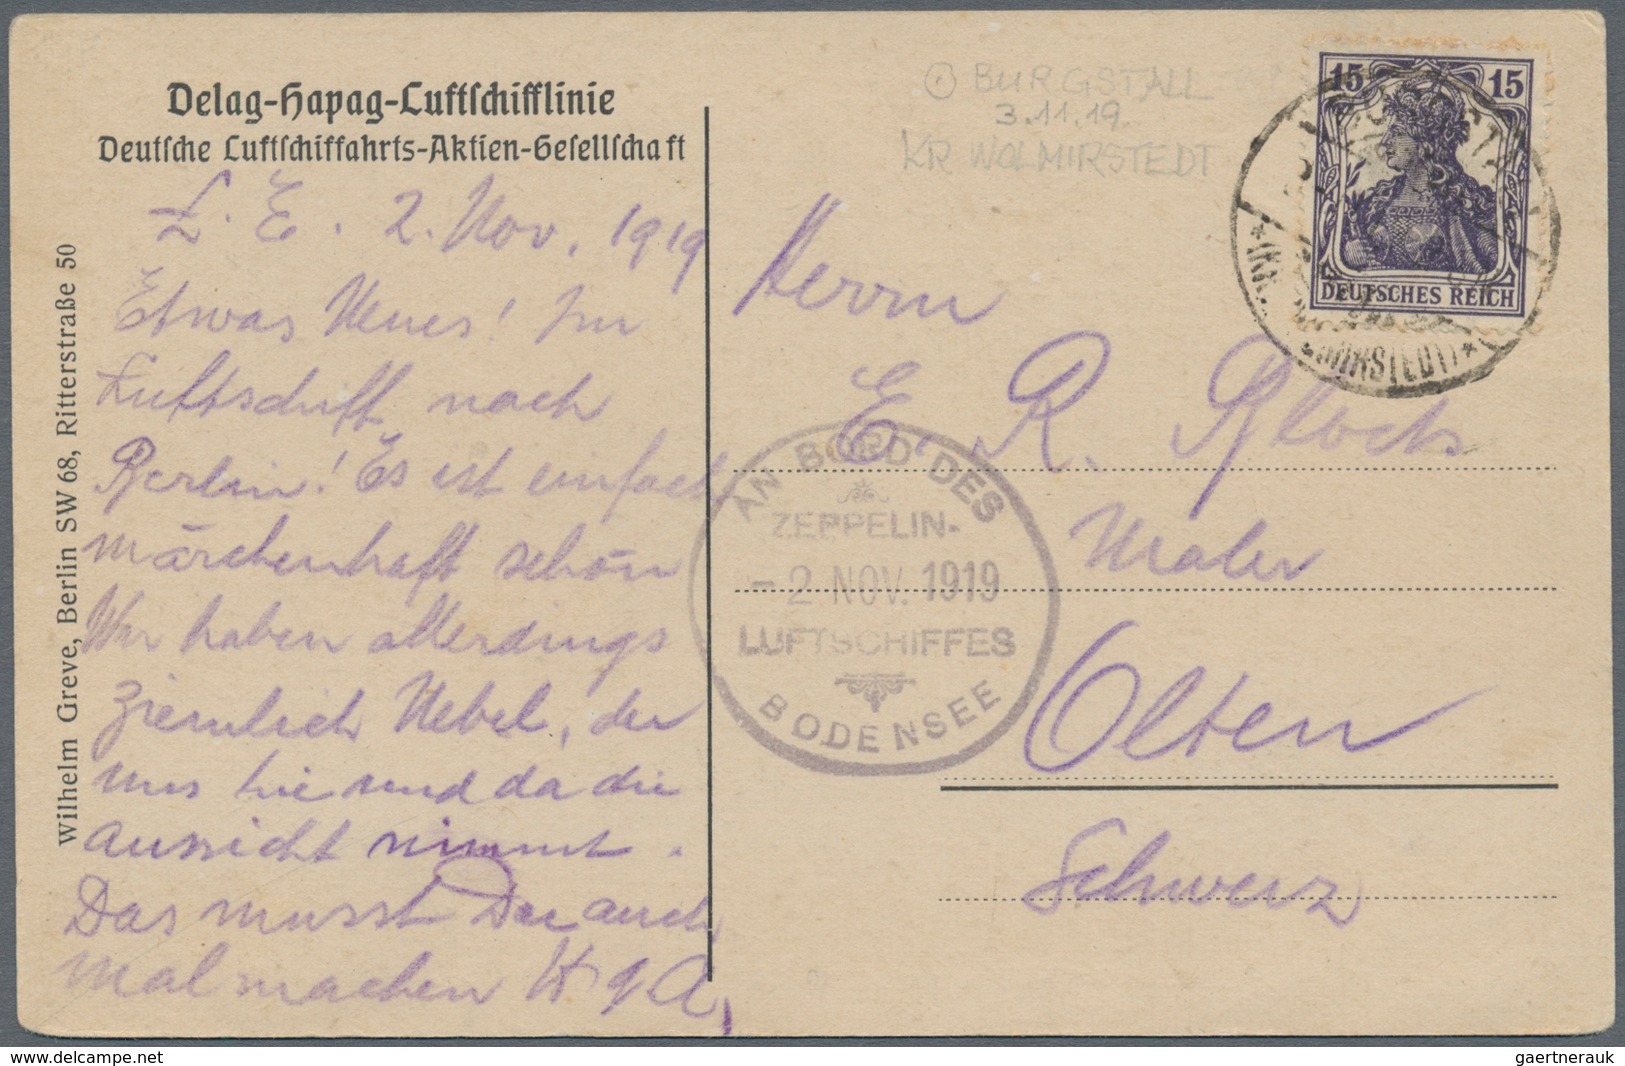 Delag-Hapag-Luftschifflinie
Deutsche Luftschiffahrts-Aktien-Gesellschaft
L. E. 2. Nov. 1919
Etwas Neues! Im
Luftschiff nach
Berlin! Es ist einfach
märchenhaft schön
Wir haben allerdings
ziemlich Nebel, der
uns hie und da die
Aussicht nimmt.
Das musst Du auch
mal machen
Wilhelm Greve, Berlin SW 68, Ritterstraße 50
⊙ BURGSTALL
3.11.19.
KR WOLMIRSTEDT
15 15
DEUTSCHES REICH
AN BORD DES
ZEPPELIN-
- 2 NOV. 1919
LUFTSCHIFFES
BODENSEE
Herrn
E. R.
Maler
Olten
Schweiz
delcampe.net
gaertnerauk